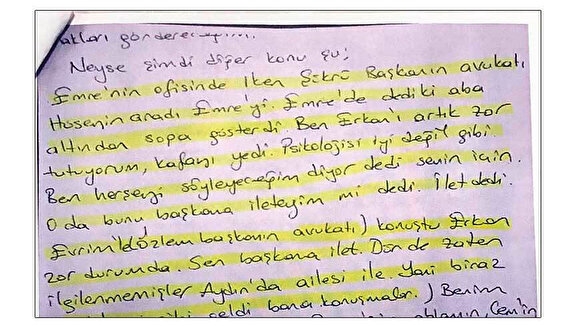 göndereceğim.
Neyse şimdi diğer konu şu;
Emre'nin ofisinde iken Şükrü Başkanın avukatı
Hüseyin aradı Emre'yi. Emre'de dediki aba
altından sopa gösterdi. Ben Erkan'ı artık zor
tutuyorum, kafayı yedi. Psikolojisi iyi değil gibi
Ben herşeyi söyleyeceğim diyor dedi senin için.
O da bunu başkana ileteyim mi dedi. İlet dedi.
Evrim'le (Özlem başkanın avukatı) konuştu Erkan
zor durumda. Sen başkana ilet. Dün de zaten
ilgilenmemişler Aydın'da ailesi ile. Yani biraz
geldi bana konuşmalar.) Benim
ablamın, Cem'in